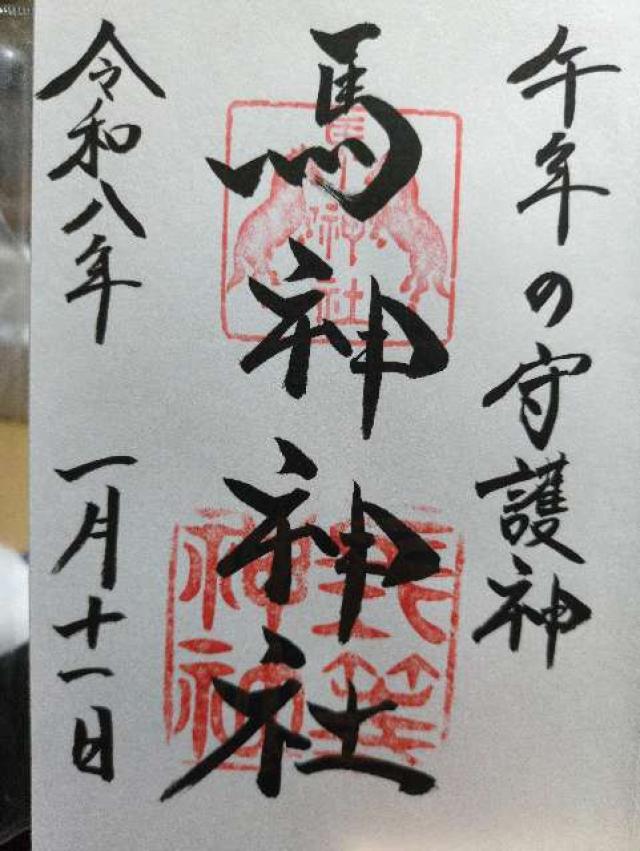 午年の守護神
馬神神社
令和八年 一月十一日
神社